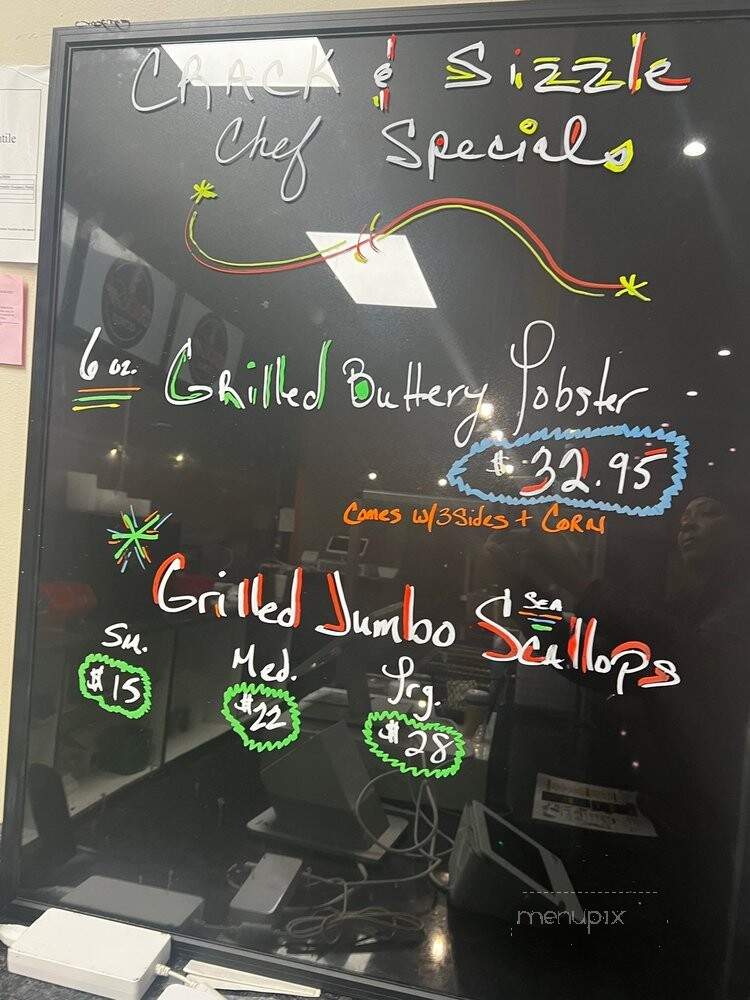 CRACK & Sizzle
Chef Specials
6 oz. GRilled Buttery Lobster
$32.95
Comes w/3 Sides + CORN
Grilled Jumbo Sea Scallops
Sm. Med. Lrg.
$15 $22 $28
menupix